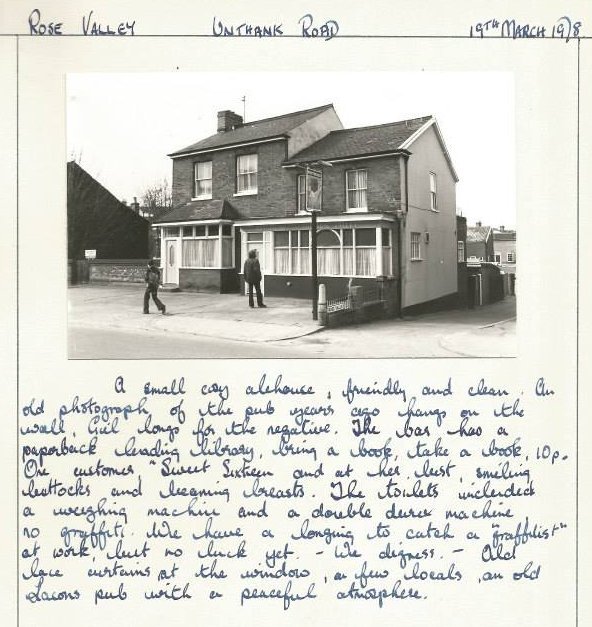 ROSE VALLEY UNTHANK ROAD 19TH MARCH 1978
A small cosy alehouse, friendly and clean. An
old photograph of the pub years ago hangs on the
wall, Gil longs for the negative. The bar has a
paperback lending library, bring a book, take a book, 10p.
One customer, "Sweet Sixteen and at her best, smiling
buttocks and beaming breasts. The toilets included
a weighing machine and a double durex machine
no graffiti. We have a longing to catch a "graffitist"
at work, but no luck yet. - We digress. - Old
lace curtains at the window, a few locals, an old
Lacons pub with a peaceful atmosphere.